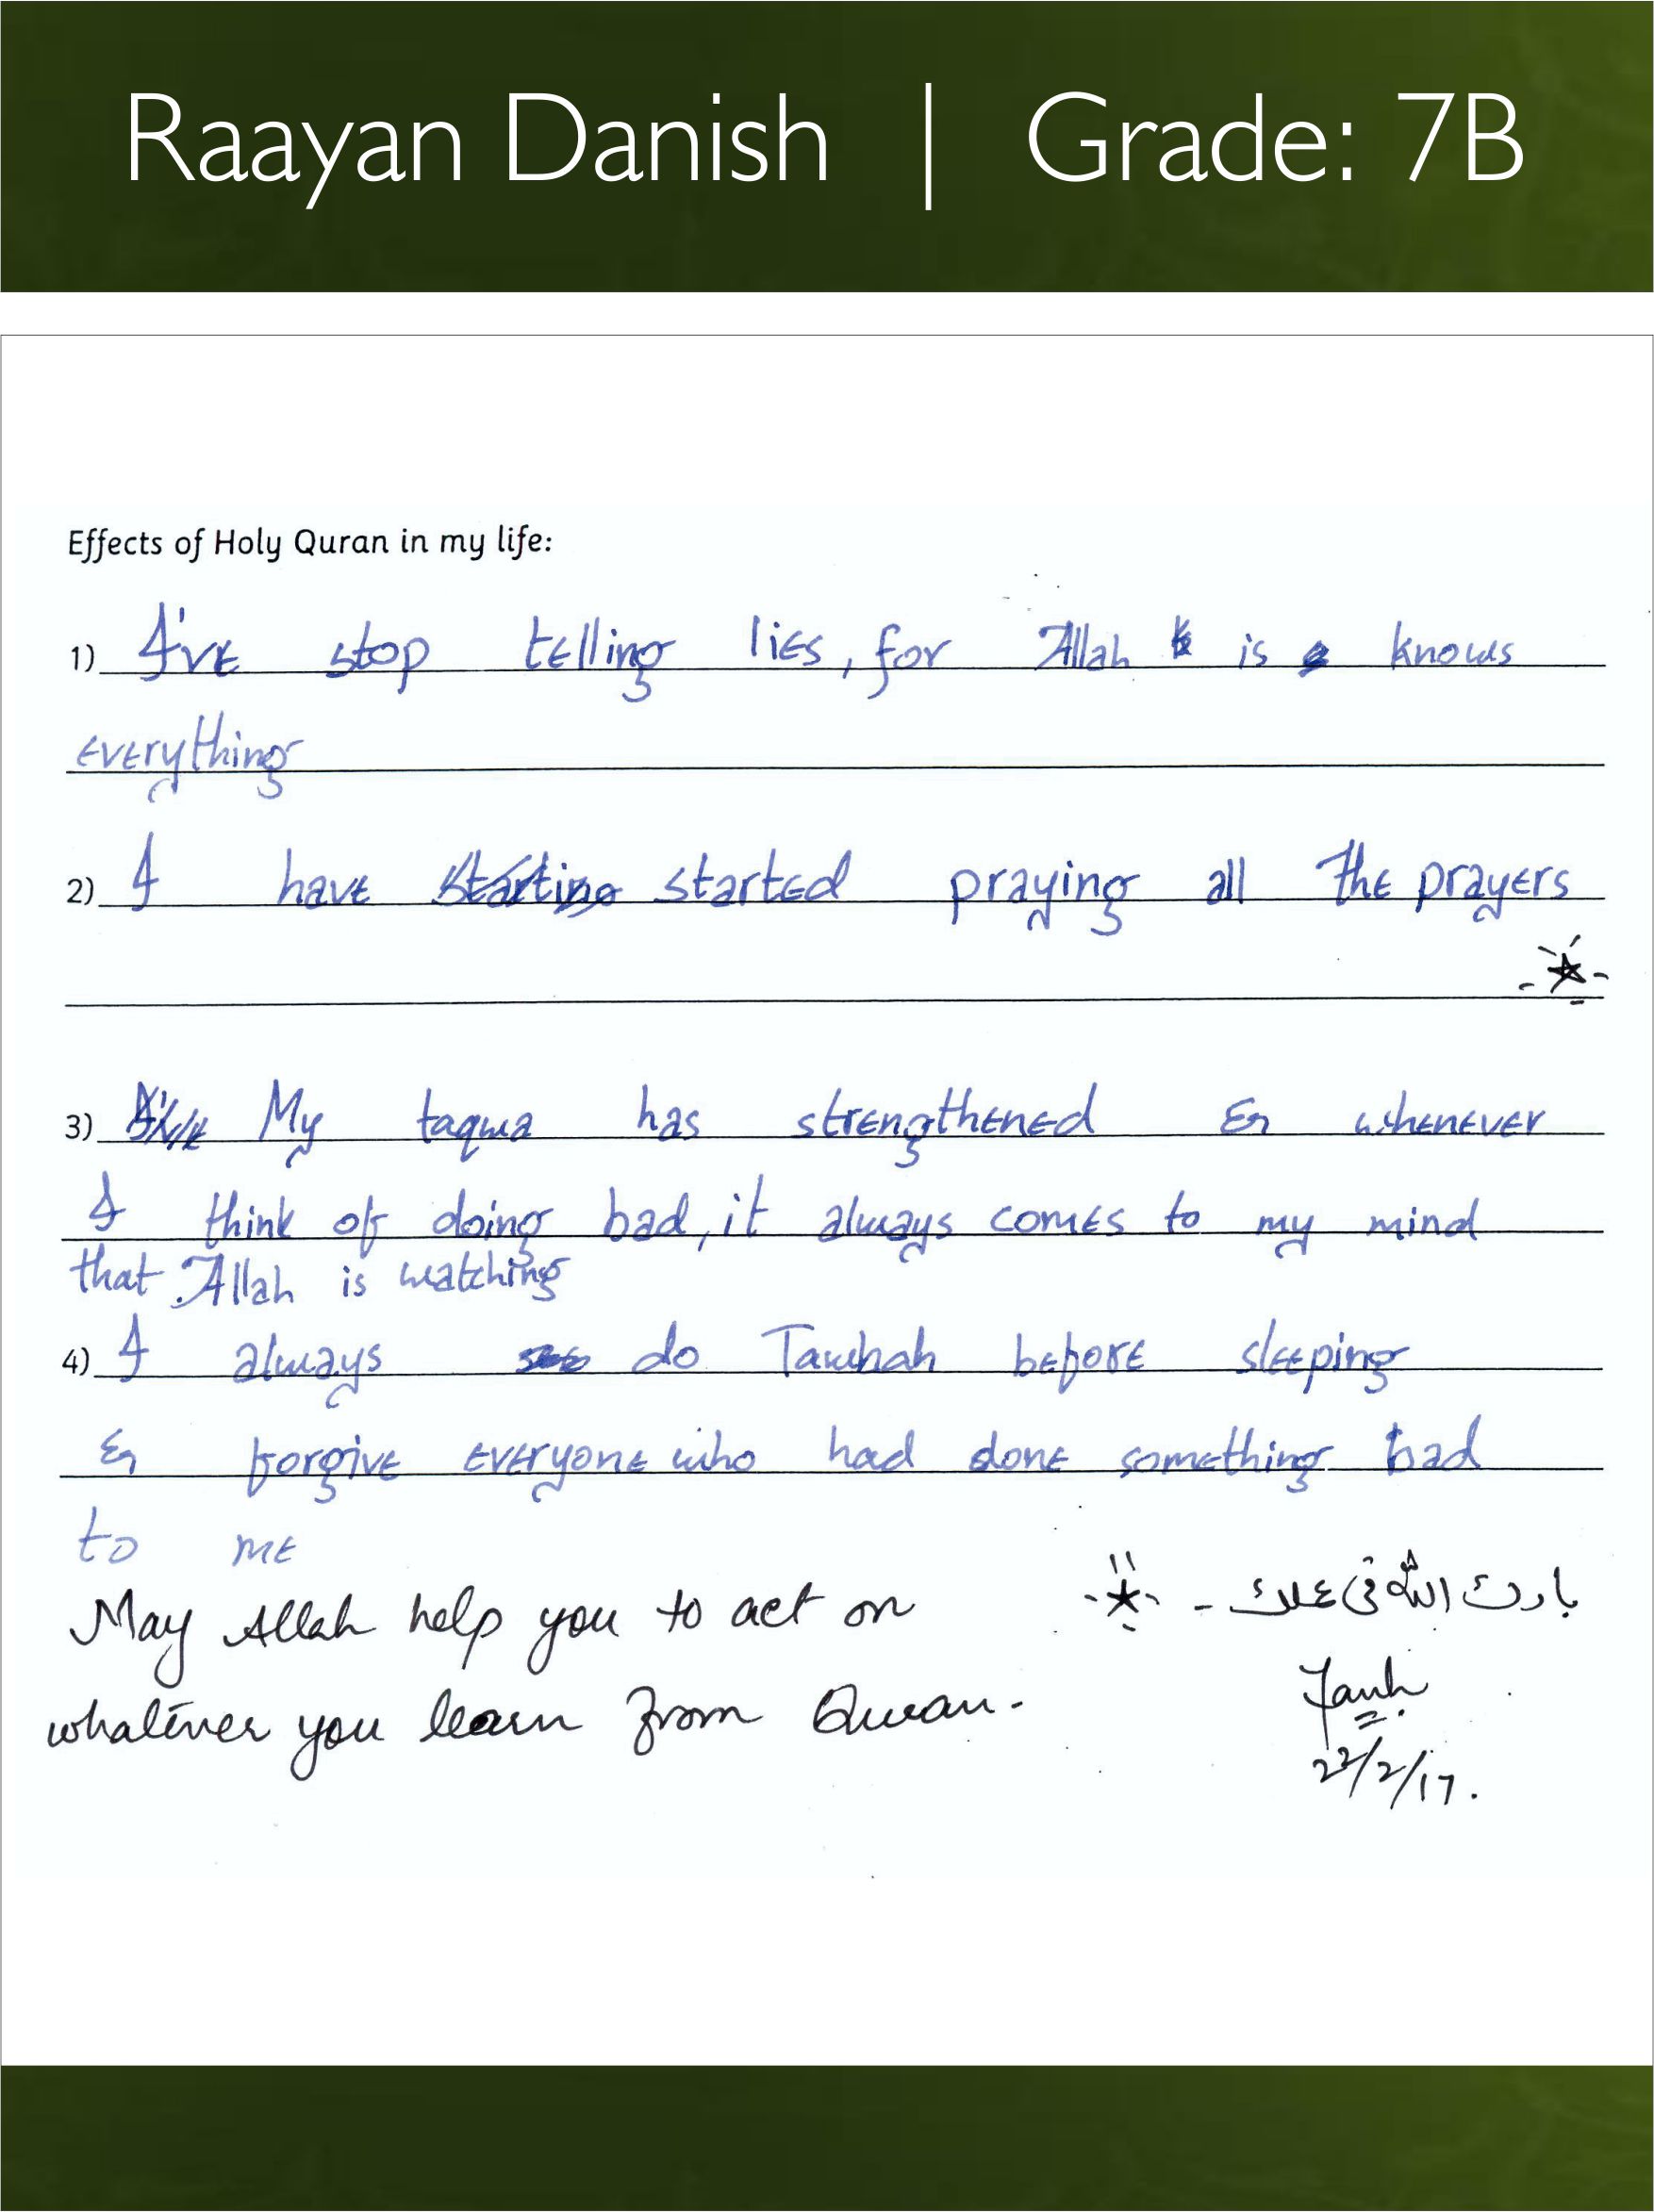 Raayan Danish | Grade: 7B
Effects of Holy Quran in my life:
1) I've stop telling lies, for Allah is knows
everything
2) I have starting started praying all the prayers
3) I've My taqwa has strengthened & whenever
I think of doing bad, it always comes to my mind
that Allah is watching
4) I always do Tawbah before sleeping
& forgive everyone who had done something bad
to me
May Allah help you to act on
whatever you learn from Quran.
بارك الله في
22/2/17.